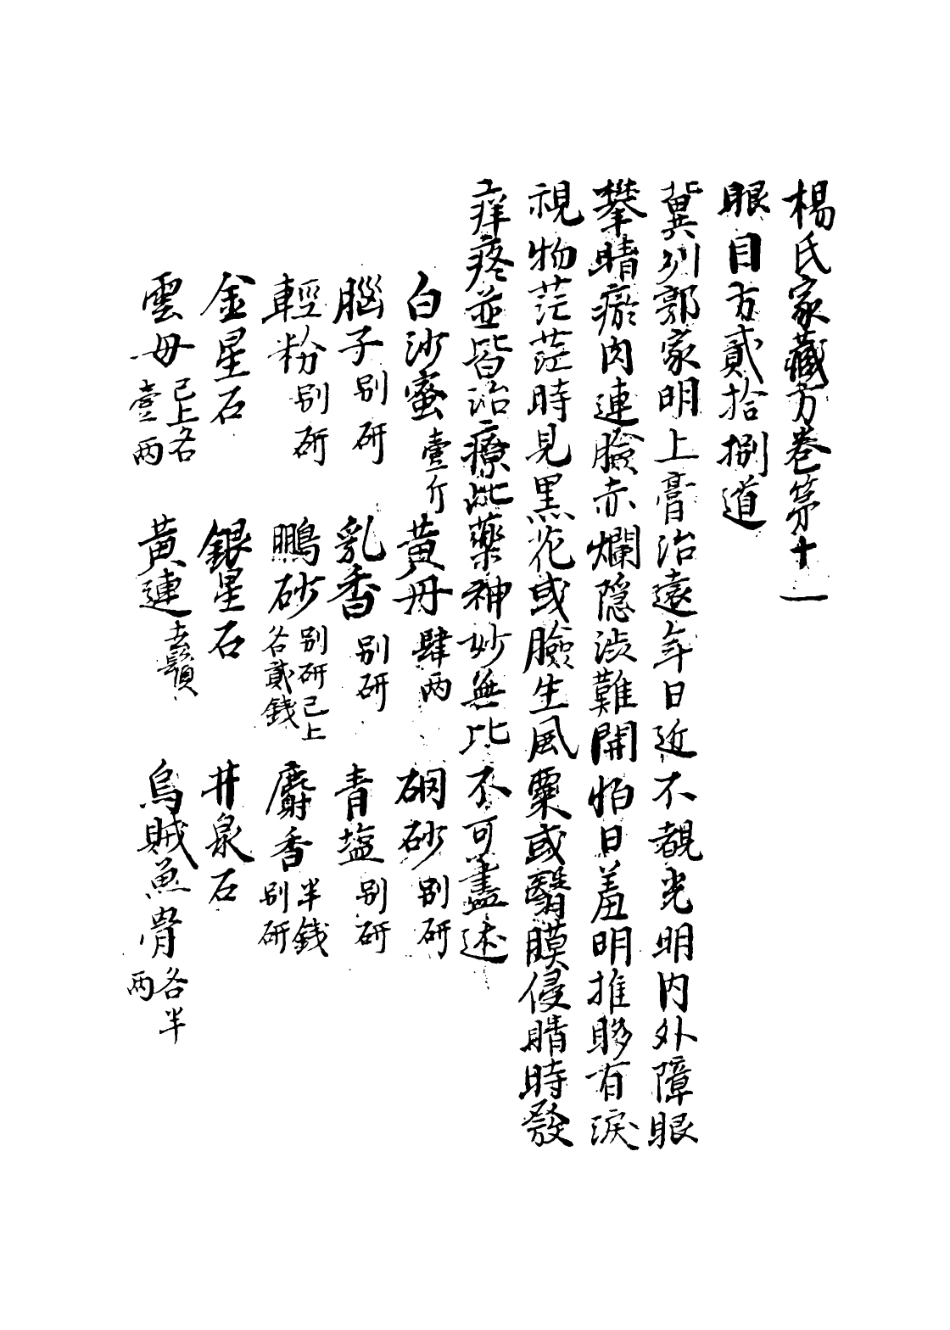 楊氏家藏方卷第十一
眼目方貳拾捌道
冀州郭家明上膏治遠年日近不覩光明內外障眼
攀睛瘀肉連臉赤爛隱澁難開怕日羞明推眵有淚
視物茫茫時見黑花或臉生風粟或翳膜侵睛時發
痒疼並皆治療此藥神妙無比不可盡述
白沙蜜壹斤 黃丹肆兩 硇砂別研
腦子別研 乳香別研 青塩別研
輕粉別研 鵬砂別研已上各貳錢 麝香半錢別研
金星石 銀星石 井泉石
雲母已上各壹兩 黃連去鬚 烏賊魚骨各半兩